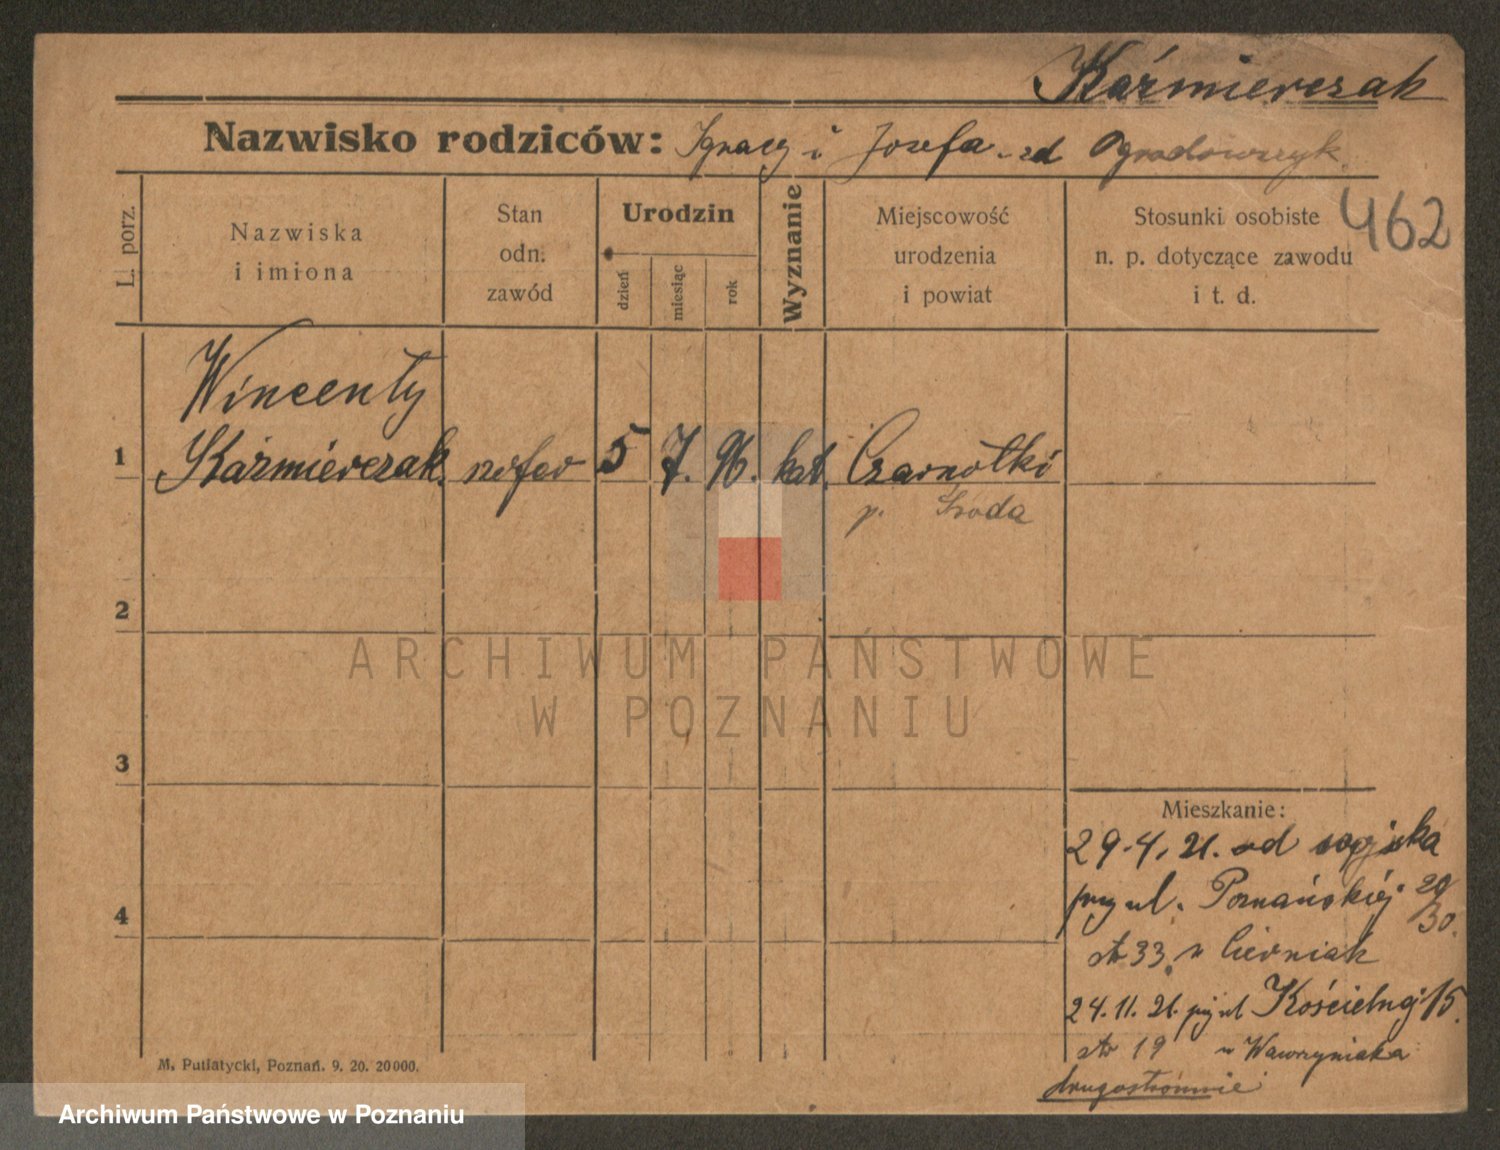 Kaźmierczak
Nazwisko rodziców: Ignacy i Józefa zd Ogrodowczyk
462
L. porz.
Nazwiska
i imiona
Stan
odn.
zawód
Urodzin
dzień
miesiąc
rok
Wyznanie
Miejscowość
urodzenia
i powiat
Stosunki osobiste
n. p. dotyczące zawodu
i t. d.
Wincenty
1 Kaźmierczak szofer 5 7. 96. kat. Czarnotki
p. Środa
2
ARCHIWUM PAŃSTWOWE
W POZNANIU
3
Mieszkanie:
29.4.21. od
przy ul. Poznańskiej 29/30.
str 33 u Cierniak
4
24.11.21. przy ul Kościelnej 15.
str 19 u Wawrzyniaka
drugostronnie
M. Putiatycki, Poznań. 9. 20. 20000.
Archiwum Państwowe w Poznaniu